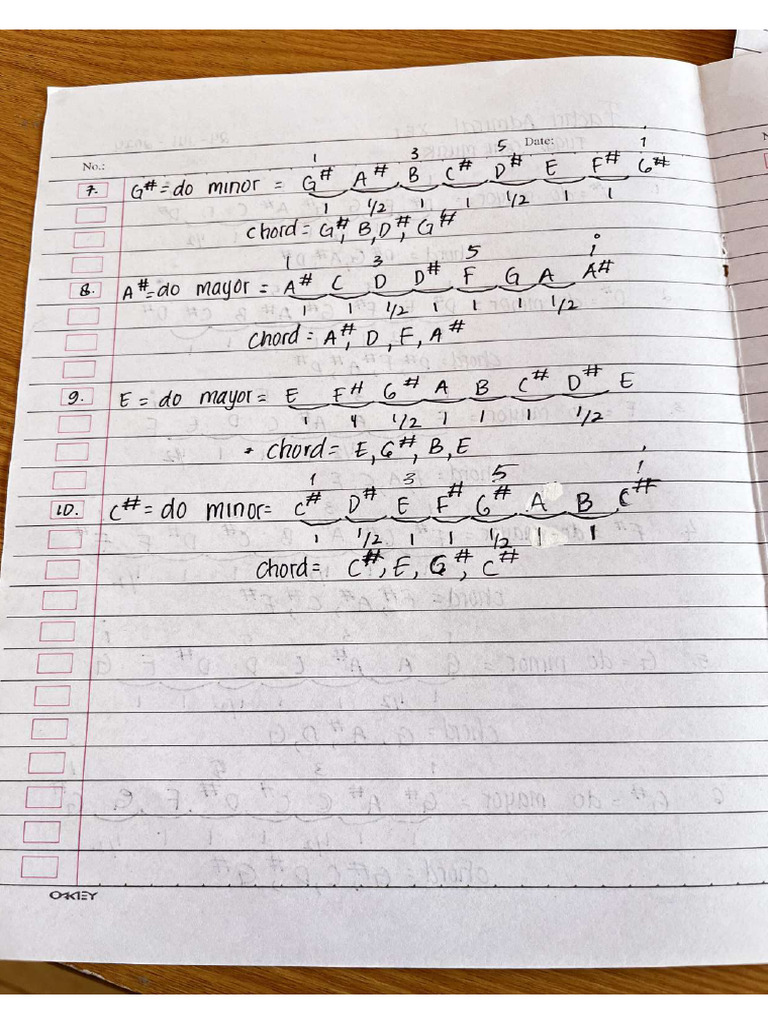 No.:
Date:
1 3 5 i
7. G# = do minor = G# A# B C# D# E F# G#
1 1/2 1 1 1/2 1 1
chord = G#, B, D#, G#
1 3 5 i
8. A# = do mayor = A# C D D# F G A A#
1 1 1/2 1 1 1 1/2
chord = A#, D, F, A#
9. E = do mayor = E F# G# A B C# D# E
1 1 1/2 1 1 1 1/2
chord = E, G#, B, E
1 3 5 i
10. C# = do minor = C# D# E F# G# A B C#
1 1/2 1 1 1/2 1 1
chord = C#, E, G#, C#
OKEY